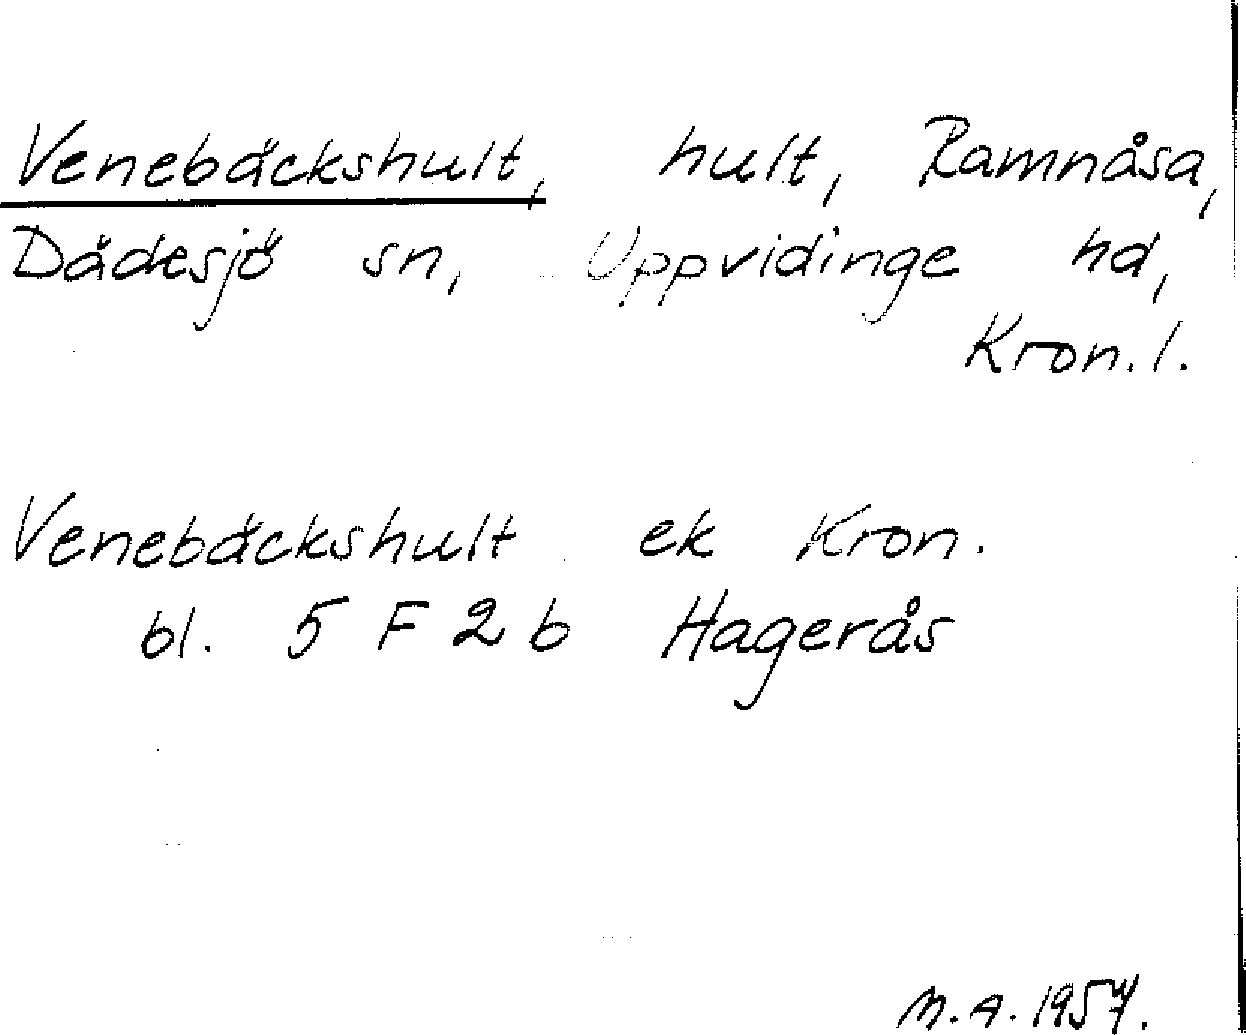 Venebäckshult, hult, Ramnåsa,
Dädesjö sn, Uppvidinge hd,
Kron. l.
Venebäckshult ek Kron.
bl. 5 F 2 b Hagerås
M. A. 1957.